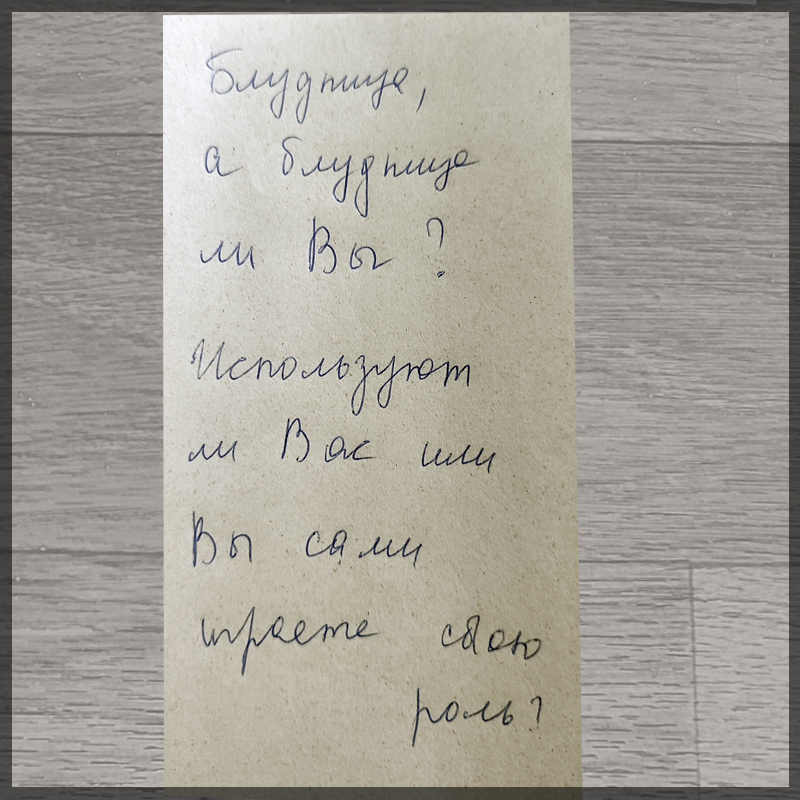 Блудница,
а блудница
ли Вы?
Используют
ли Вас или
Вы сами
играете свою
роль?